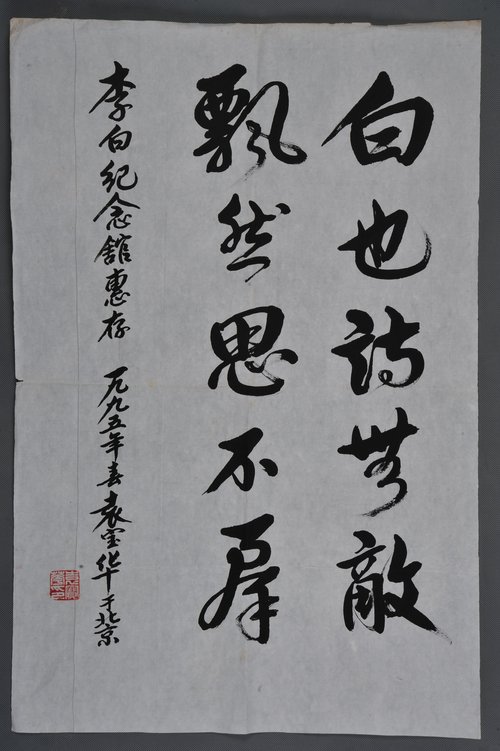 白也詩無敵
飄然思不羣
李白纪念舘惠存 一九九五年春袁宝华于北京